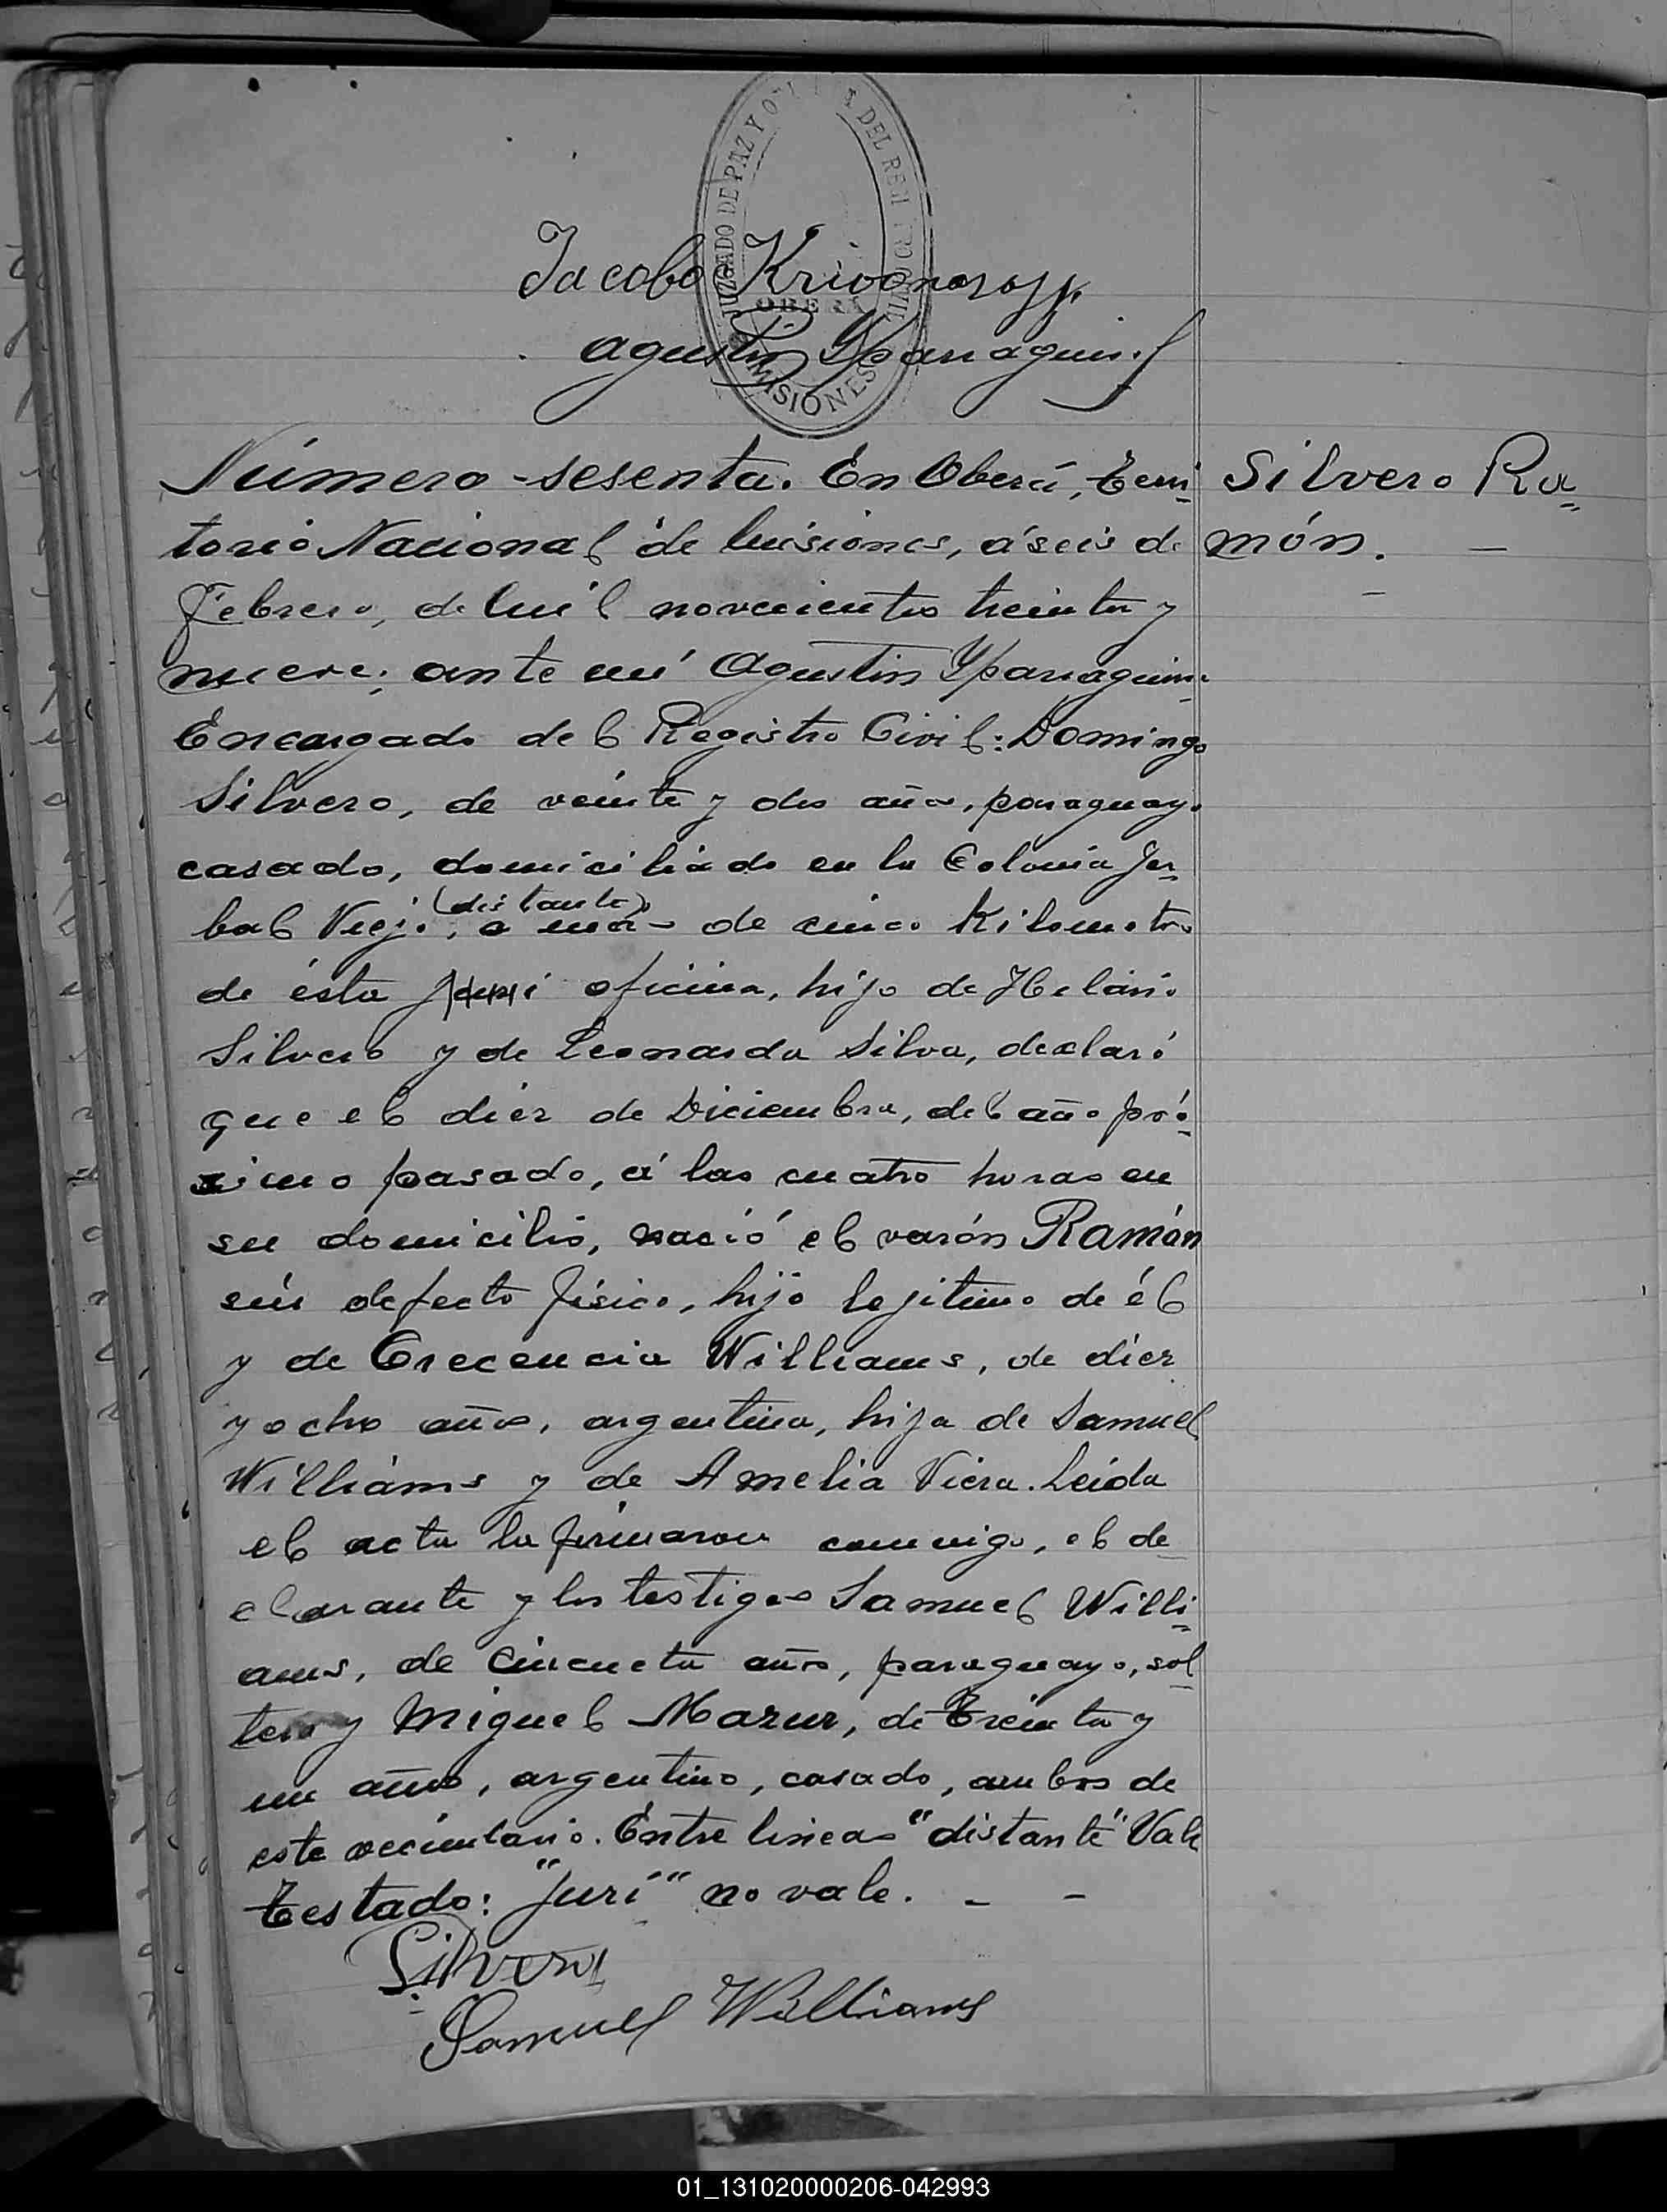 JUZGADO DE PAZ Y DEL REG CIVIL
OBERA
MISIONES
Jacobo Krivonosoff
Agustin Yparraguirre
Número sesenta. En Oberá, Terri
Silvero Ra
torio Nacional de Misiones, á seis de
món.
Febrero, de Mil novecientos treinta y
nueve; ante mí Agustin Yparraguirre
Encargado del Registro Civil: Domingo
Silvero, de veinte y dos años, paraguayo
casado, domiciliado en la Colonia Yer
(distante)
bal Viejo, a más de cinco Kilometros
de ésta juri oficina, hijo de Helario
Silvero y de Leonarda Silva, declaró
que el diez de Diciembre, del año pró
ximo pasado, á las cuatro horas en
su domicilio, nació el varón Ramón
sin defecto físico, hijo lejitimo de él
y de Crecencia Williams, de diez
y ocho años, argentina, hija de Samuel
Williams y de Amelia Viera. Leida
el acta la firmaron conmigo, el de
clarante y los testigos Samuel Willi
ams, de cincueta años, paraguayo, sol
tero y Miguel Mazur, de Treinta y
un años, argentino, casado, ambos de
este vecindario. Entre lineas "distante" Vale
Testado: "juri" no vale. - -
Silvero
Samuel Williams
01_131020000206-042993